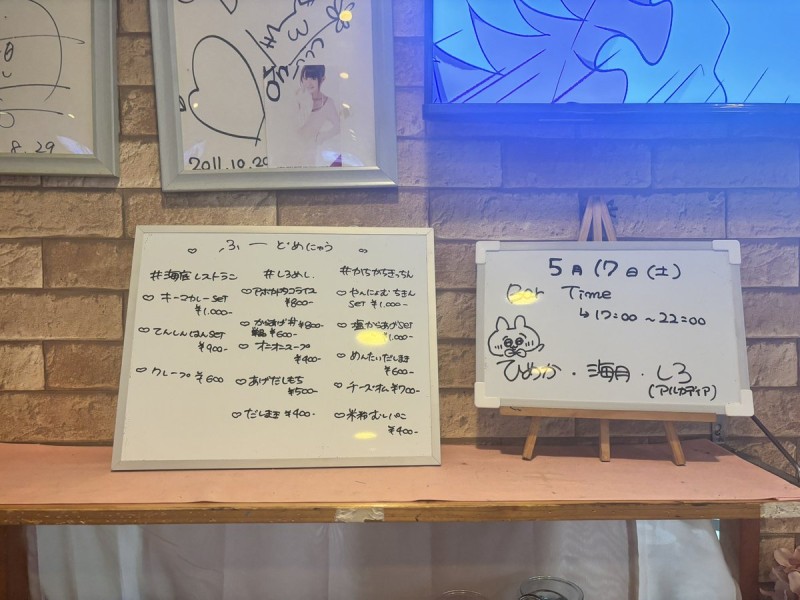 8.29
2011.10.20
ふーどめにゅう
#海底レストラン
キーマカレーSET
¥1.000-
てんしんはんSET
¥900-
クレープ ¥600
#しろめし。
アボカドタコライス
¥800-
からあげ丼 ¥800-
¥600-
オニオンスープ
¥400-
あげだしもち
¥500-
だしまき ¥400-
#かちかちきっちん
やんにょむちきん
SET ¥1.000-
塩からあげSET
1.000-
めんたいだしまき
¥600-
チーズオム¥700-
米粉むしぱん
¥400-
5月17日(土)
Bar Time
↳17:00～22:00
ひめか・海月・しろ
(アルカディア)